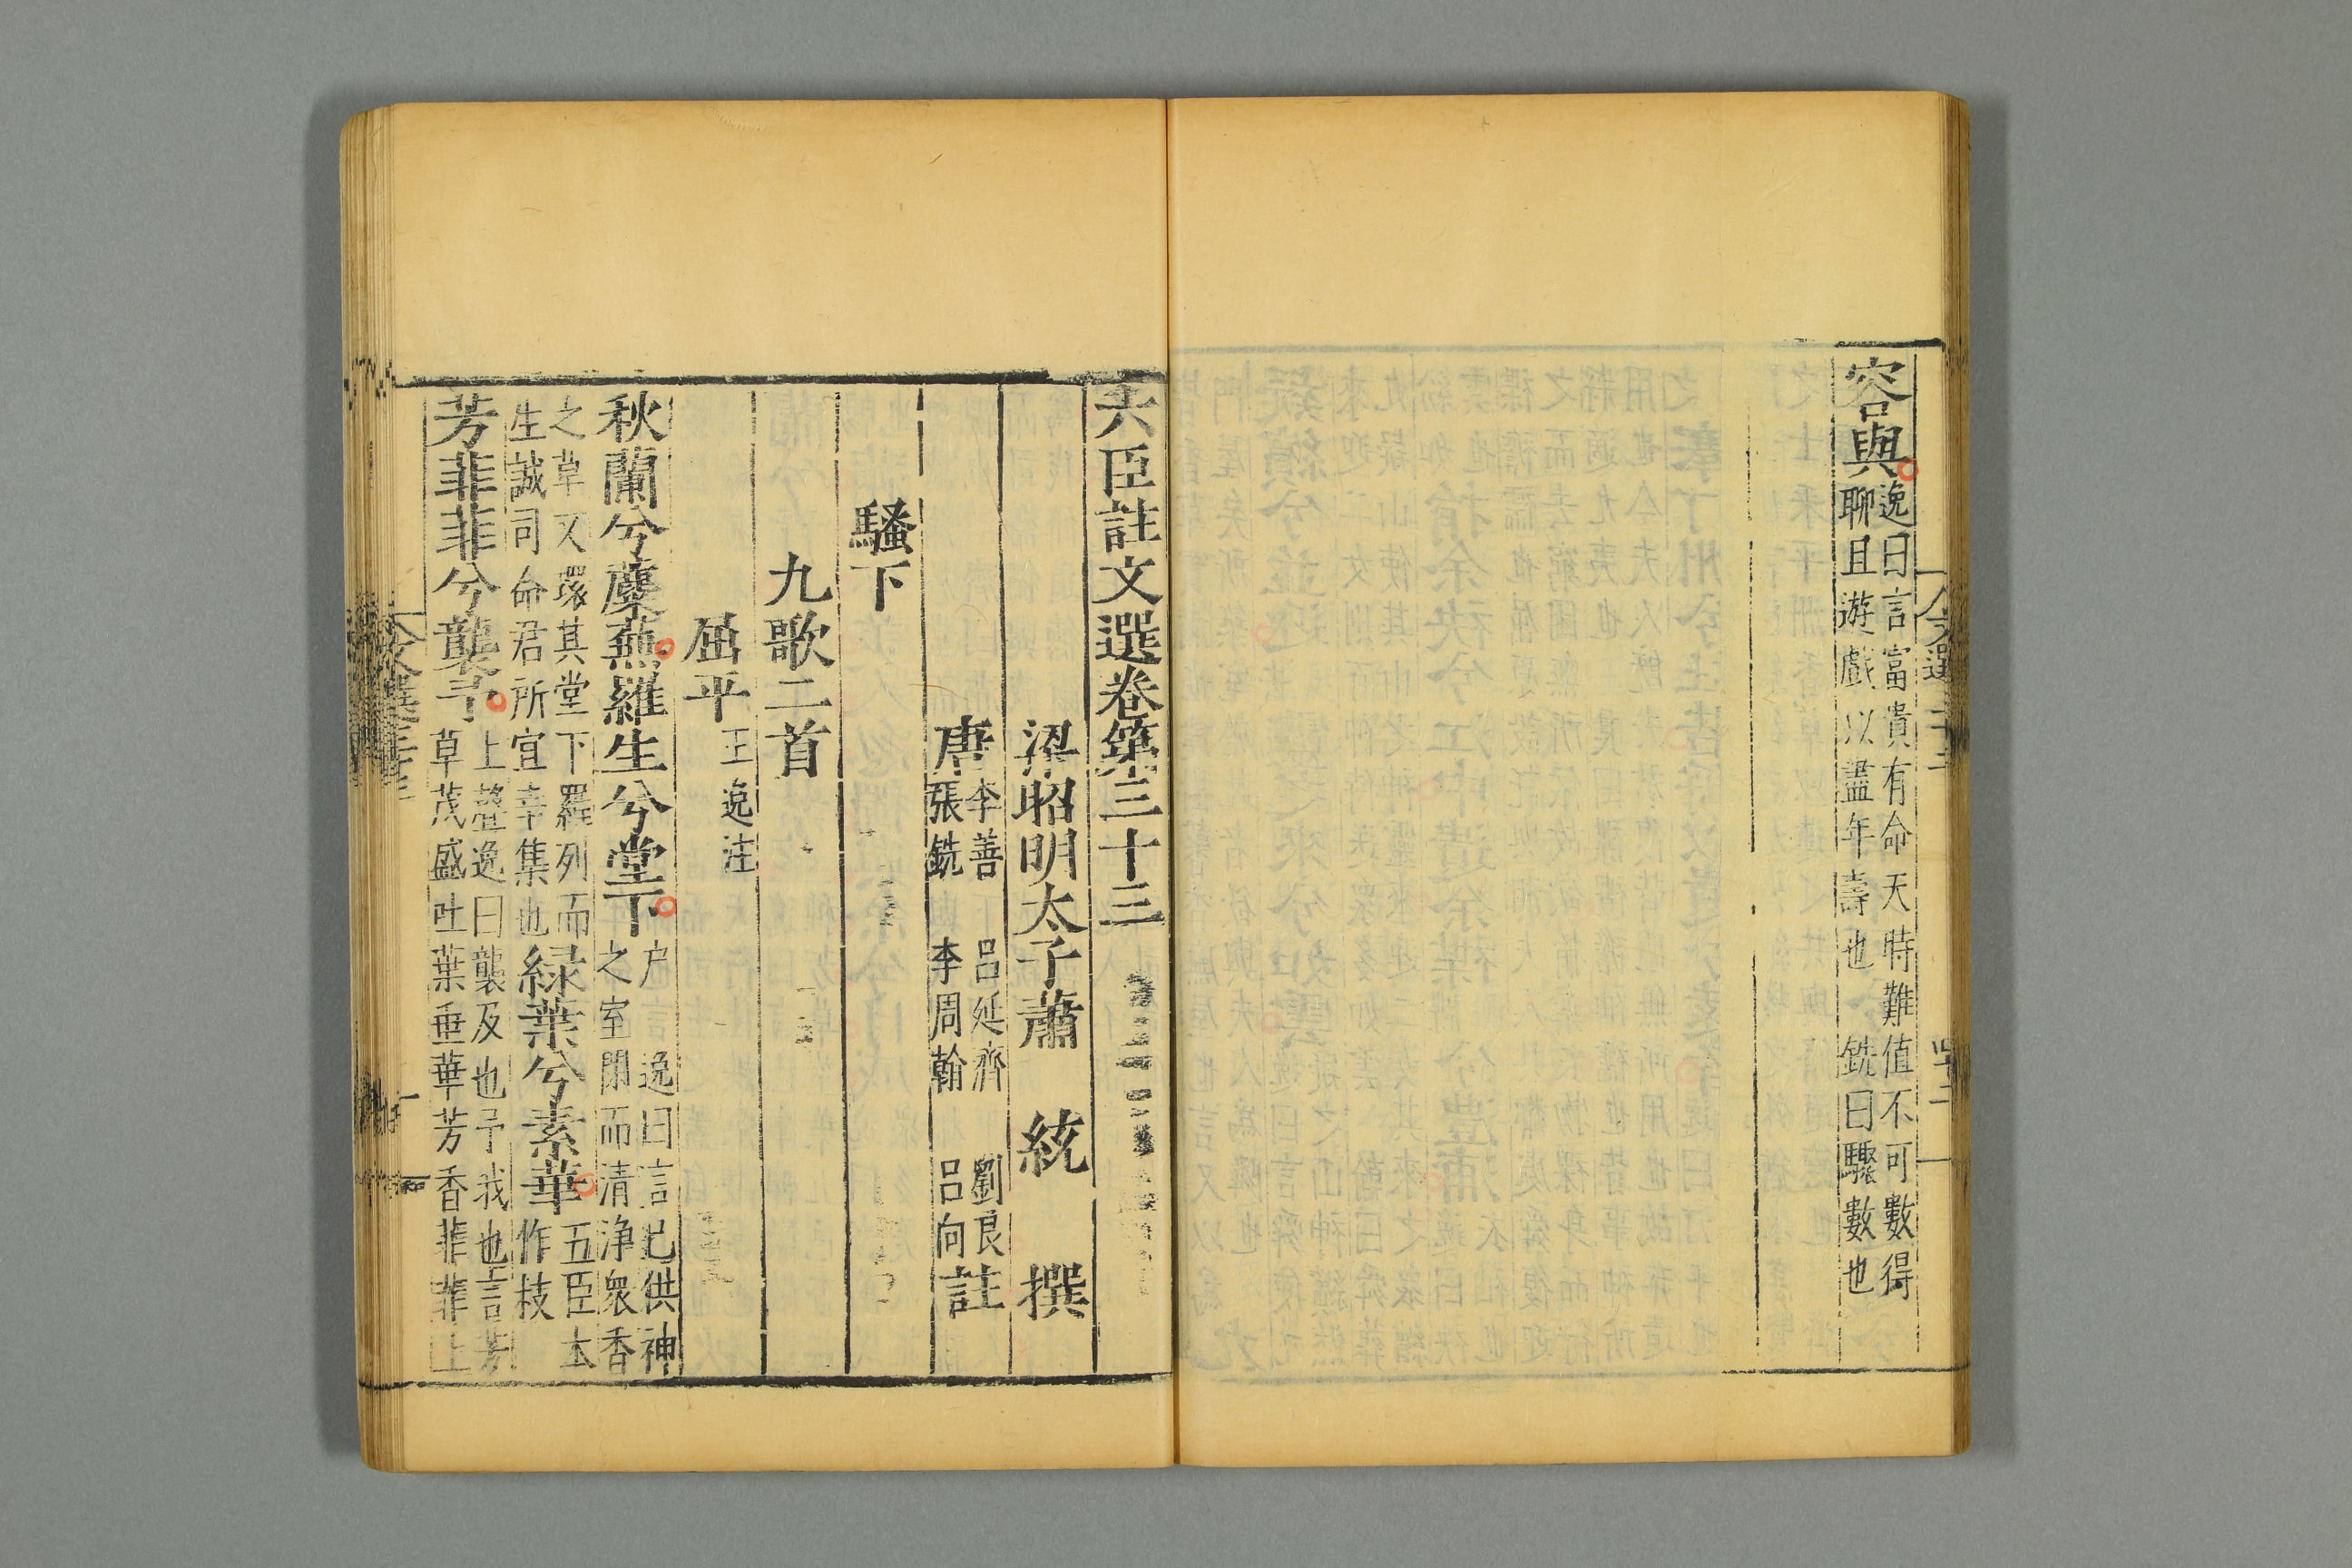 容與逸曰言富貴有命天時難值不可數得
聊且遊戲以盡年壽也 銑曰驟數也
六臣註文選卷第三十三
梁昭明太子蕭 統 撰
唐李善 呂延濟 劉良註
張銑 李周翰 呂向
騷下
九歌二首
屈平王逸注
秋蘭兮麋蕪羅生兮堂下户 逸曰言己供神
之室閒而清净衆香
之草又環其堂下羅列而
生誠司命君所宜幸集也
緑葉兮素華五臣本
作枝
芳菲菲兮襲予上聲逸曰襲及也予我也言芳
草茂盛吐葉垂華芳香菲菲上